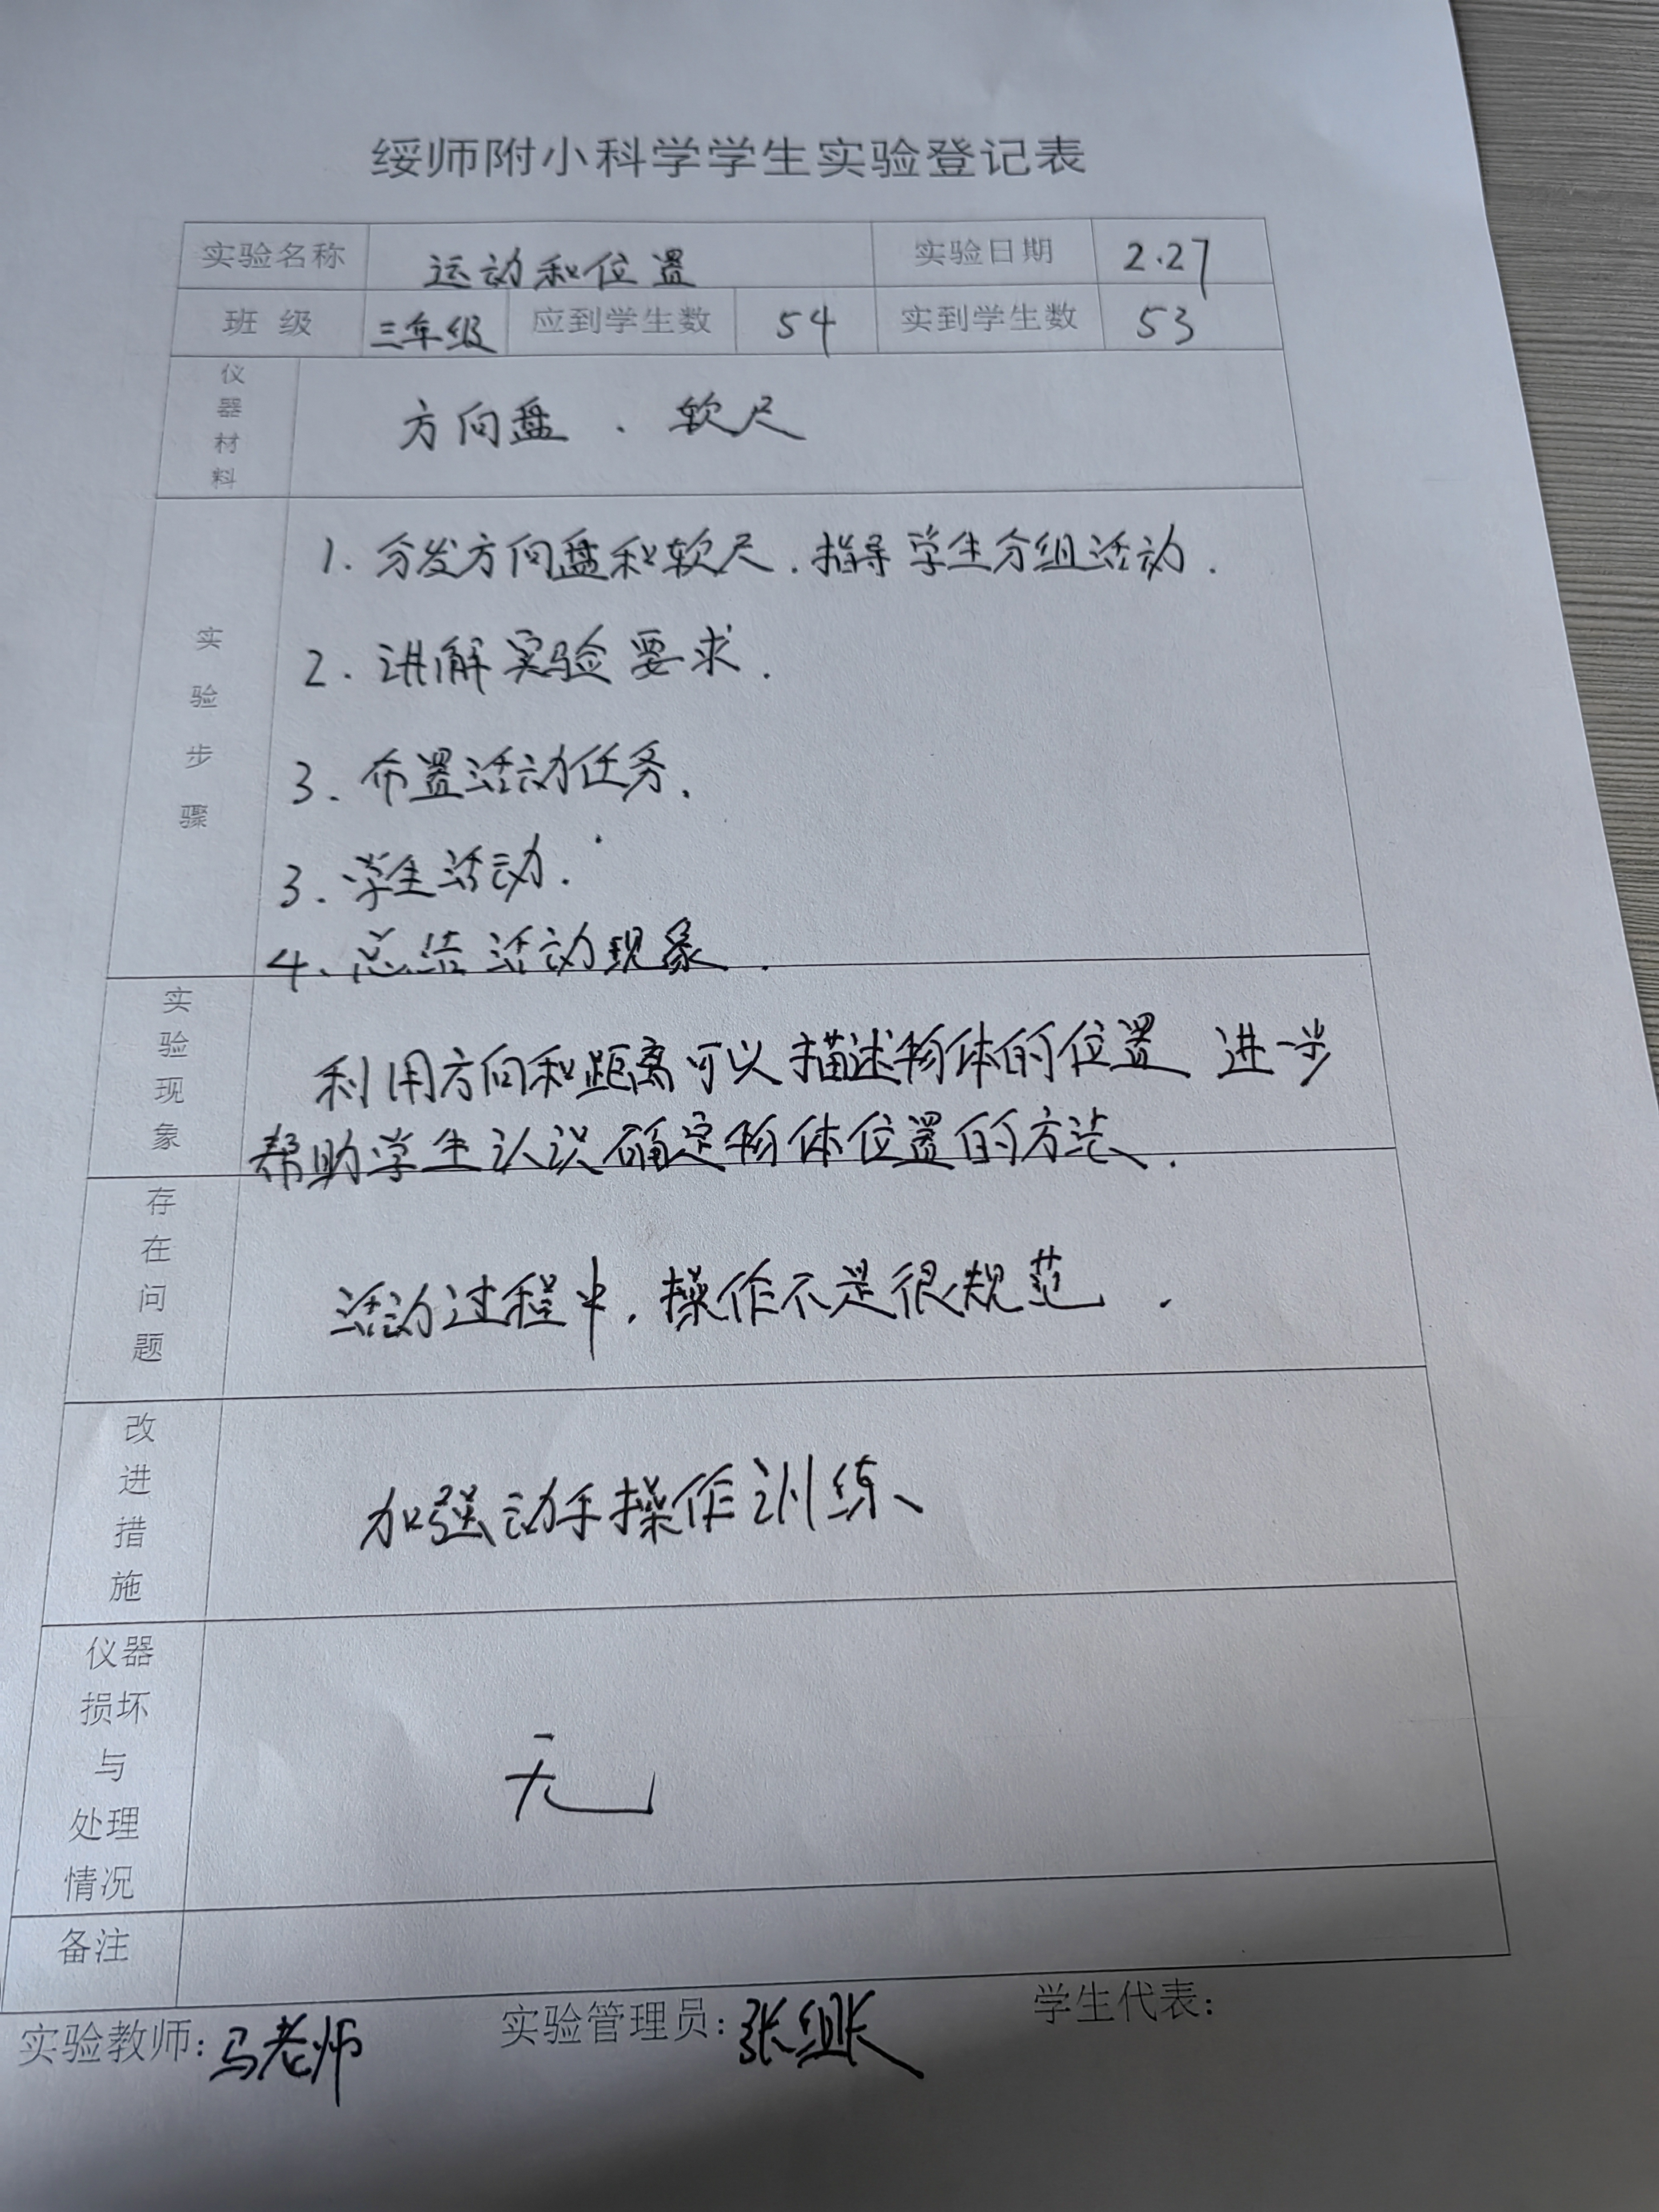 绥师附小科学学生实验登记表
实验名称 运动和位置 实验日期 2.27
班 级 三年级 应到学生数 54 实到学生数 53
仪器材料 方向盘 . 软尺
实验步骤
1. 分发方向盘和软尺. 指导学生分组活动.
2. 讲解实验要求.
3. 布置活动任务.
3. 学生活动.
4. 总结活动现象.
实验现象
利用方向和距离可以描述物体的位置 进一步
帮助学生认识确定物体位置的方法.
存在问题
活动过程中, 操作不是很规范.
改进措施
加强动手操作训练、
仪器损坏与处理情况
无
备注
实验教师: 马老师 实验管理员: 张组长 学生代表: